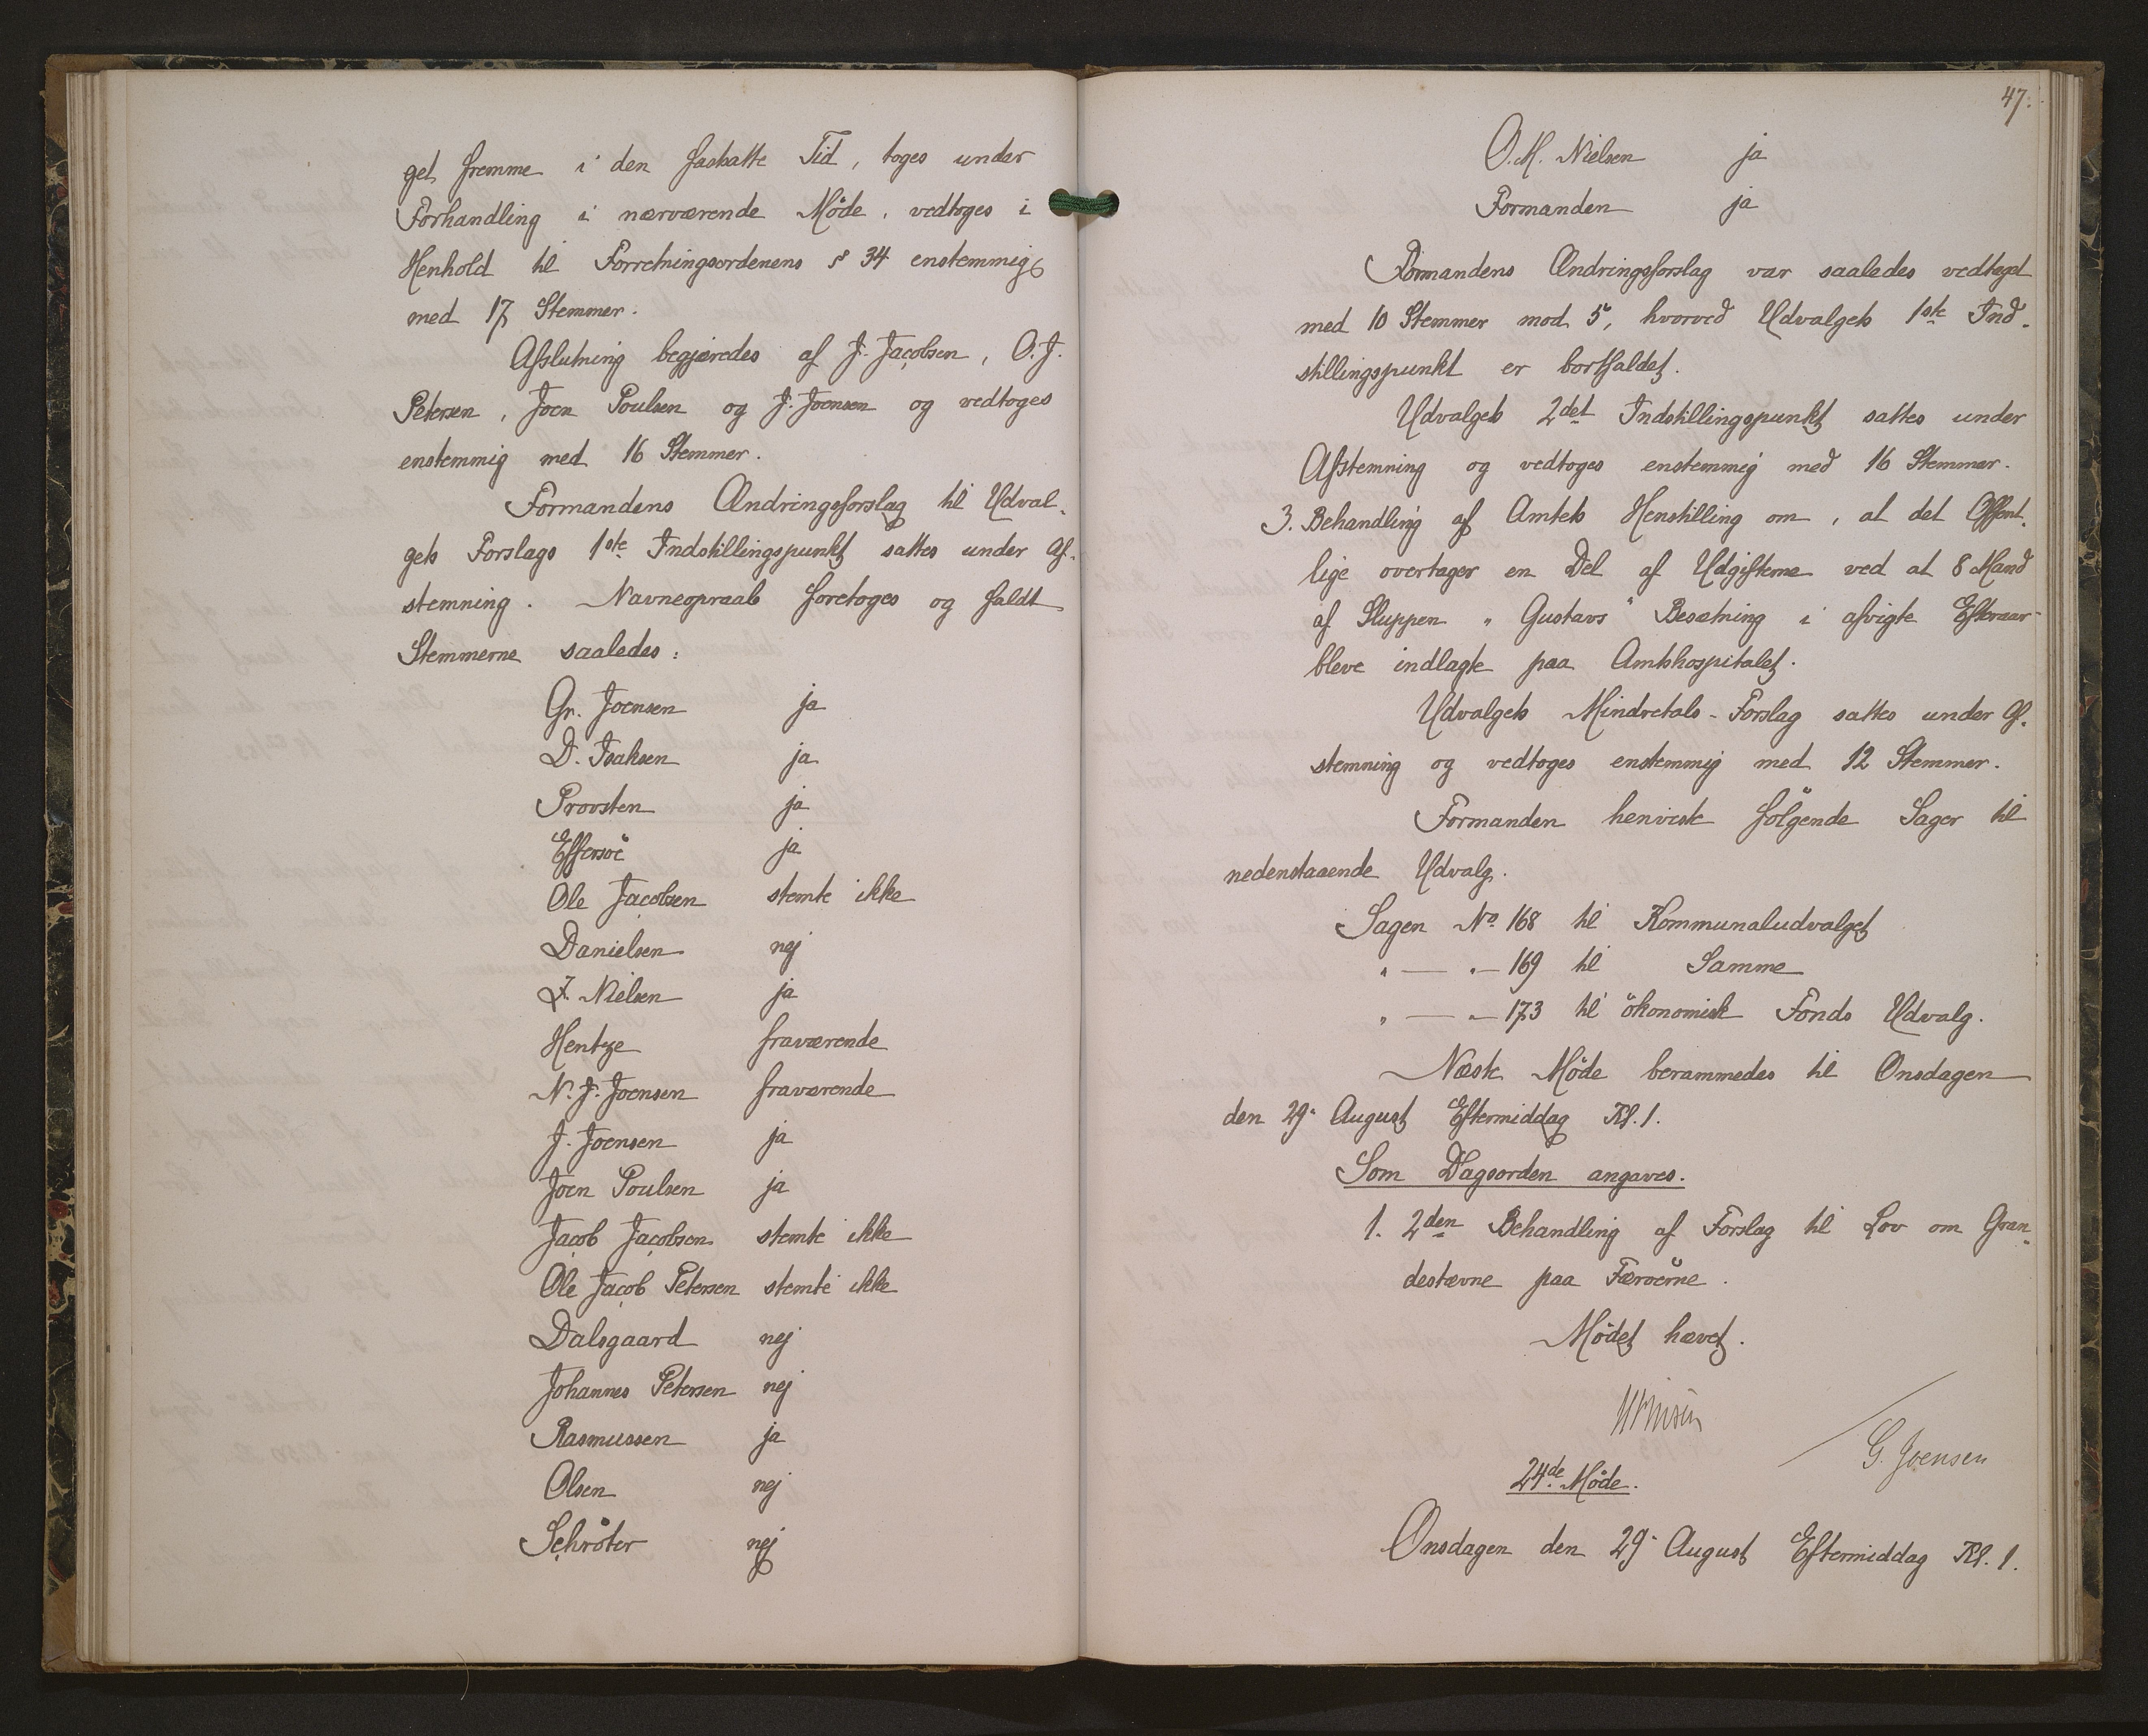 get fremme i den fastsatte Tid, toges under
Forhandling i nærværende Møde, vedtoges i
Henhold til Forretningsordenens § 34 enstemmig
med 17 Stemmer.
Afslutning begjæredes af J. Jacobsen, O. J.
Petersen, Joen Poulsen og J. Joensen og vedtoges
enstemmig med 16 Stemmer.
Formandens Ændringsforslag til Udval-
gets Forslags 1ste Indstillingspunkt sattes under Af-
stemning. Navneopraab foretoges og faldt
Stemmerne saaledes:
Gr. Joensen ja
D. Isaksen ja
Provsten ja
Effersøe ja
Ole Jacobsen stemte ikke
Danielsen nej
J. Nielsen ja
Hentze fraværende
N. J. Joensen fraværende
J. Joensen ja
Joen Poulsen ja
Jacob Jacobsen stemte ikke
Ole Jacob Petersen stemte ikke
Dalsgaard nej
Johannes Petersen nej
Rasmussen ja
Olsen nej
Schrøter nej
47.
O. M. Nielsen ja
Formanden ja
Formandens Ændringsforslag var saaledes vedtaget
med 10 Stemmer mod 5, hvorved Udvalgets 1ste Ind-
stillingspunkt er bortfaldet.
Udvalgets 2det Indstillingspunkt sattes under
Afstemning og vedtoges enstemmig med 16 Stemmer.
3. Behandling af Amtets Henstilling om, at det Offent-
lige overtager en Del af Udgifterne ved at 8 Mand
af Sluppen "Gustavs" Besætning i afvigte Efteraar
bleve indlagte paa Amtshospitalet.
Udvalgets Mindretals-Forslag sattes under Af-
stemning og vedtoges enstemmig med 12 Stemmer.
Formanden henviste følgende Sager til
nedenstaaende Udvalg.
Sagen No. 168 til Kommunaludvalget
" — " — 169 til Samme
" — " — 173 til økonomisk Fonds Udvalg.
Næste Møde berammedes til Onsdagen
den 29. August Eftermiddag Kl. 1.
Som Dagsorden angaves.
1. 2den Behandling af Forslag til Lov om Gran-
destævne paa Færøerne.
Mødet hævet.
G. Joensen
24de Møde.
Onsdagen den 29. August Eftermiddag Kl. 1.